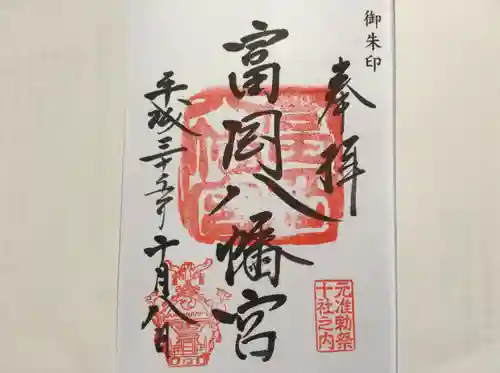 御朱印
奉拝
富岡八幡宮
平成二十五年十月八日
元准勅祭
十社之内